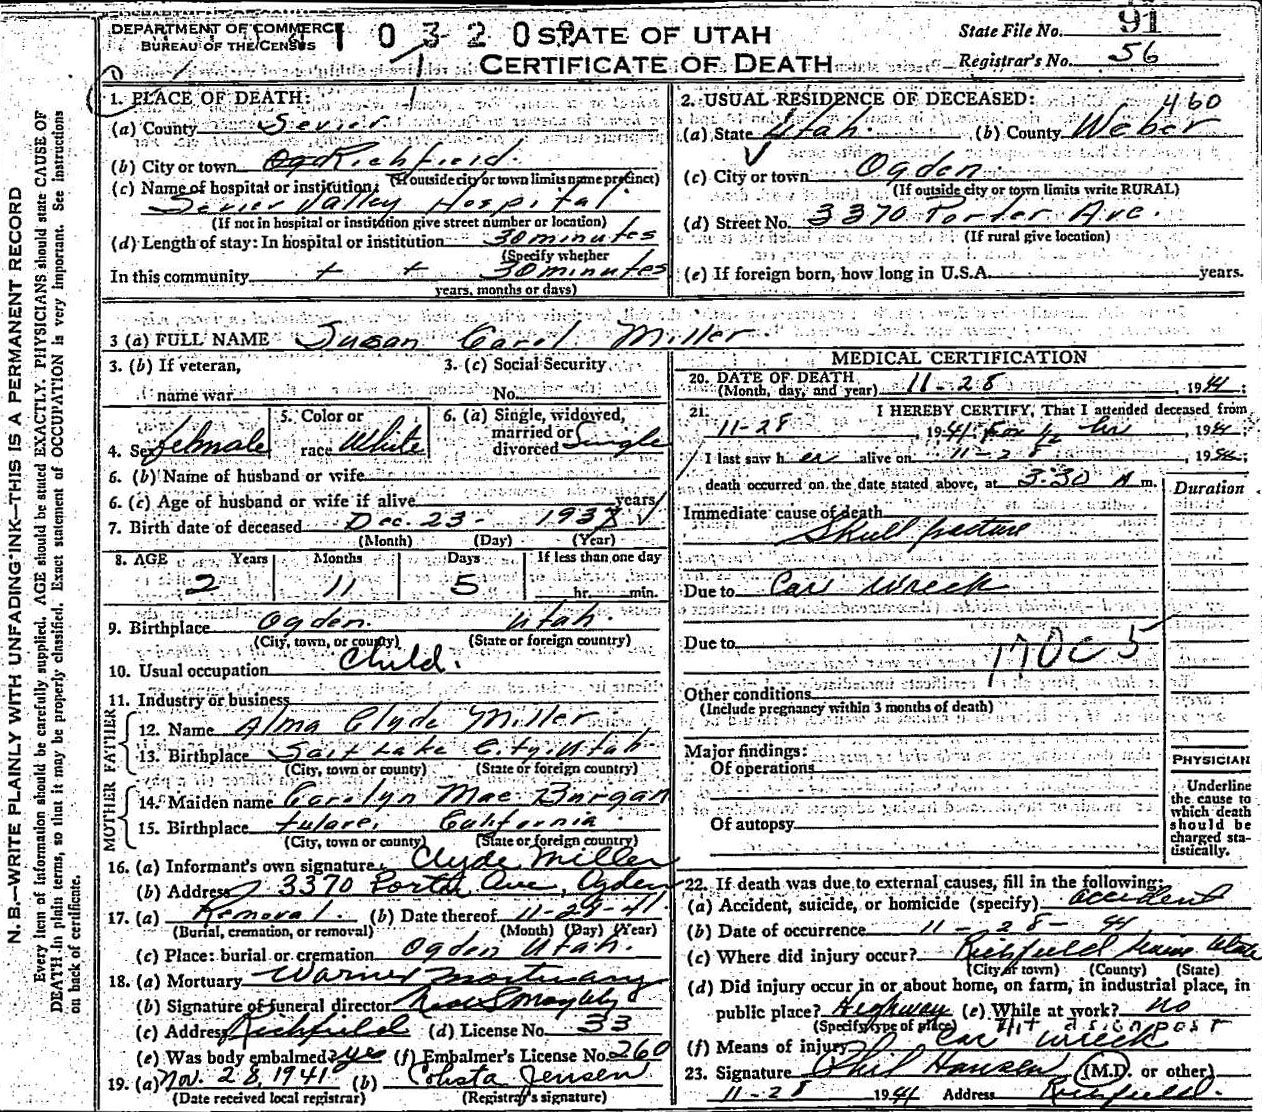 N. B.—WRITE PLAINLY WITH UNFADING INK—THIS IS A PERMANENT RECORD
Every item of information should be carefully supplied. AGE should be stated EXACTLY. PHYSICIANS should state CAUSE OF
DEATH in plain terms, so that it may be properly classified. Exact statement of OCCUPATION is very important. See instructions
on back of certificate.
DEPARTMENT OF COMMERCE
BUREAU OF THE CENSUS
STATE OF UTAH
CERTIFICATE OF DEATH
State File No. 91
Registrar's No. 56
1. PLACE OF DEATH:
(a) County Sevier
(b) City or town Richfield.
(If outside city or town limits name precinct)
(c) Name of hospital or institution:
Sevier Valley Hospital
(If not in hospital or institution give street number or location)
(d) Length of stay: In hospital or institution 30 minutes
(Specify whether
In this community + + 30 minutes
years, months or days)
2. USUAL RESIDENCE OF DECEASED:
460
(a) State Utah. (b) County Weber
(c) City or town Ogden
(If outside city or town limits write RURAL)
(d) Street No. 3370 Porter Ave.
(If rural give location)
(e) If foreign born, how long in U.S.A. years.
3 (a) FULL NAME Susan Carol Miller.
3. (b) If veteran, name war
3. (c) Social Security No.
4. Sex female
5. Color or race White
6. (a) Single, widowed, married or divorced Single
6. (b) Name of husband or wife
6. (c) Age of husband or wife if alive years
7. Birth date of deceased Dec. 23-
(Month) (Day) (Year)
8. AGE Years Months Days If less than one day
2 11 5 hr. min.
9. Birthplace Ogden. Utah.
(City, town, or county) (State or foreign country)
10. Usual occupation Child.
11. Industry or business
FATHER
12. Name Alma Clyde Miller.
13. Birthplace Salt Lake City, Utah.
(City, town or county) (State or foreign country)
MOTHER
14. Maiden name Carolyn Mae Burgan
15. Birthplace Tulare, California.
(City, town or county) (State or foreign country)
16. (a) Informant's own signature Clyde Miller
(b) Address 3370 Porter Ave, Ogden
17. (a) Removal. (b) Date thereof 11-28-41
(Burial, cremation, or removal) (Month) (Day) (Year)
(c) Place: burial or cremation Ogden Utah.
18. (a) Mortuary Mortuary
(b) Signature of funeral director
(c) Address Richfield (d) License No. 33
(e) Was body embalmed? yes (f) Embalmer's License No. 260
19. (a) Nov. 28, 1941 (b) Jensen
(Date received local registrar) (Registrar's signature)
MEDICAL CERTIFICATION
20. DATE OF DEATH 11-28, 1941;
(Month, day, and year)
21. I HEREBY CERTIFY, That I attended deceased from
11-28, 1941 For 1/2 hr, 1941;
I last saw her alive on 11-28, 1941;
death occurred on the date stated above, at 3:30 A m.
Duration
Immediate cause of death
Skull fracture
Due to Car wreck
Due to
170C 5
Other conditions
(Include pregnancy within 3 months of death)
Major findings:
Of operations
Of autopsy
PHYSICIAN
Underline
the cause to
which death
should be
charged sta-
tistically.
22. If death was due to external causes, fill in the following:
(a) Accident, suicide, or homicide (specify) accident
(b) Date of occurrence 11-28-41
(c) Where did injury occur? Richfield Sevier Utah
(City or town) (County) (State)
(d) Did injury occur in or about home, on farm, in industrial place, in
public place? Highway (e) While at work? no
(Specify type of place) Hit a sign post
(f) Means of injury Car wreck
23. Signature Phil Hansen (M.D. or other)
11-28 1941 Address Richfield.